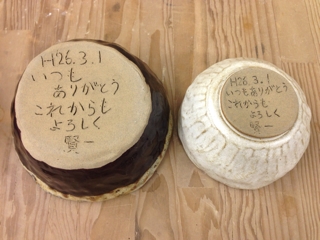 H26.3.1
いつも
ありがとう
これからも
よろしく
賢一
H26.3.1
いつもありがとう
これからも
よろしく
賢一